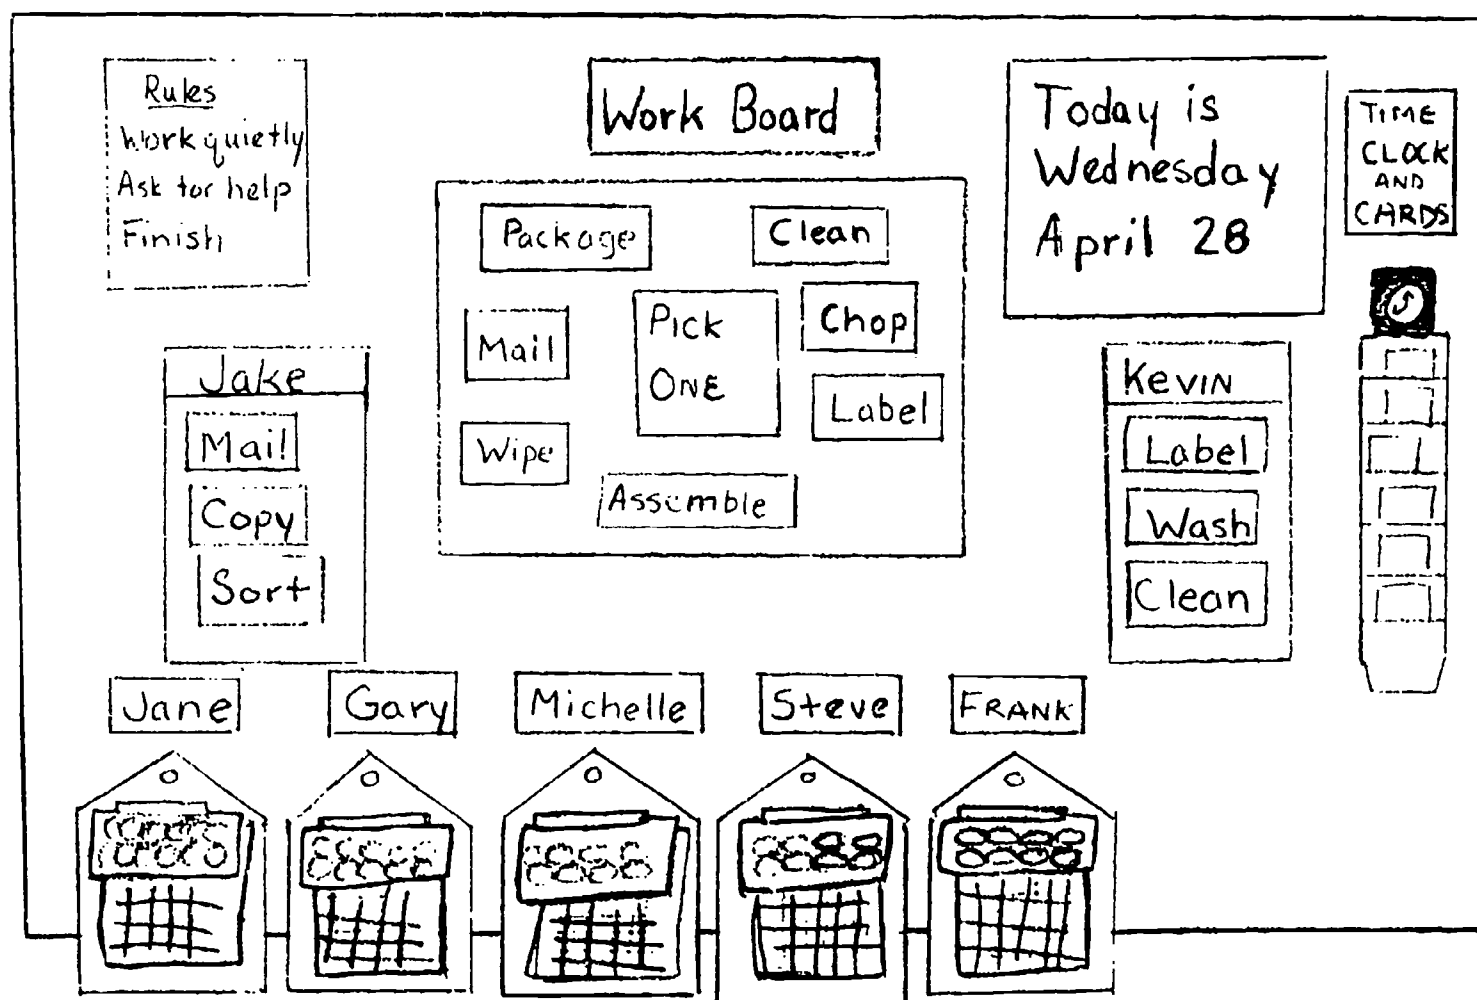 Rules
Work quietly
Ask for help
Finish
Work Board
Today is
Wednesday
April 28
TIME
CLOCK
AND
CARDS
Package
Clean
Mail
PICK
ONE
Chop
Label
Wipe
Assemble
Jake
Mail
Copy
Sort
KEVIN
Label
Wash
Clean
Jane
Gary
Michelle
Steve
FRANK